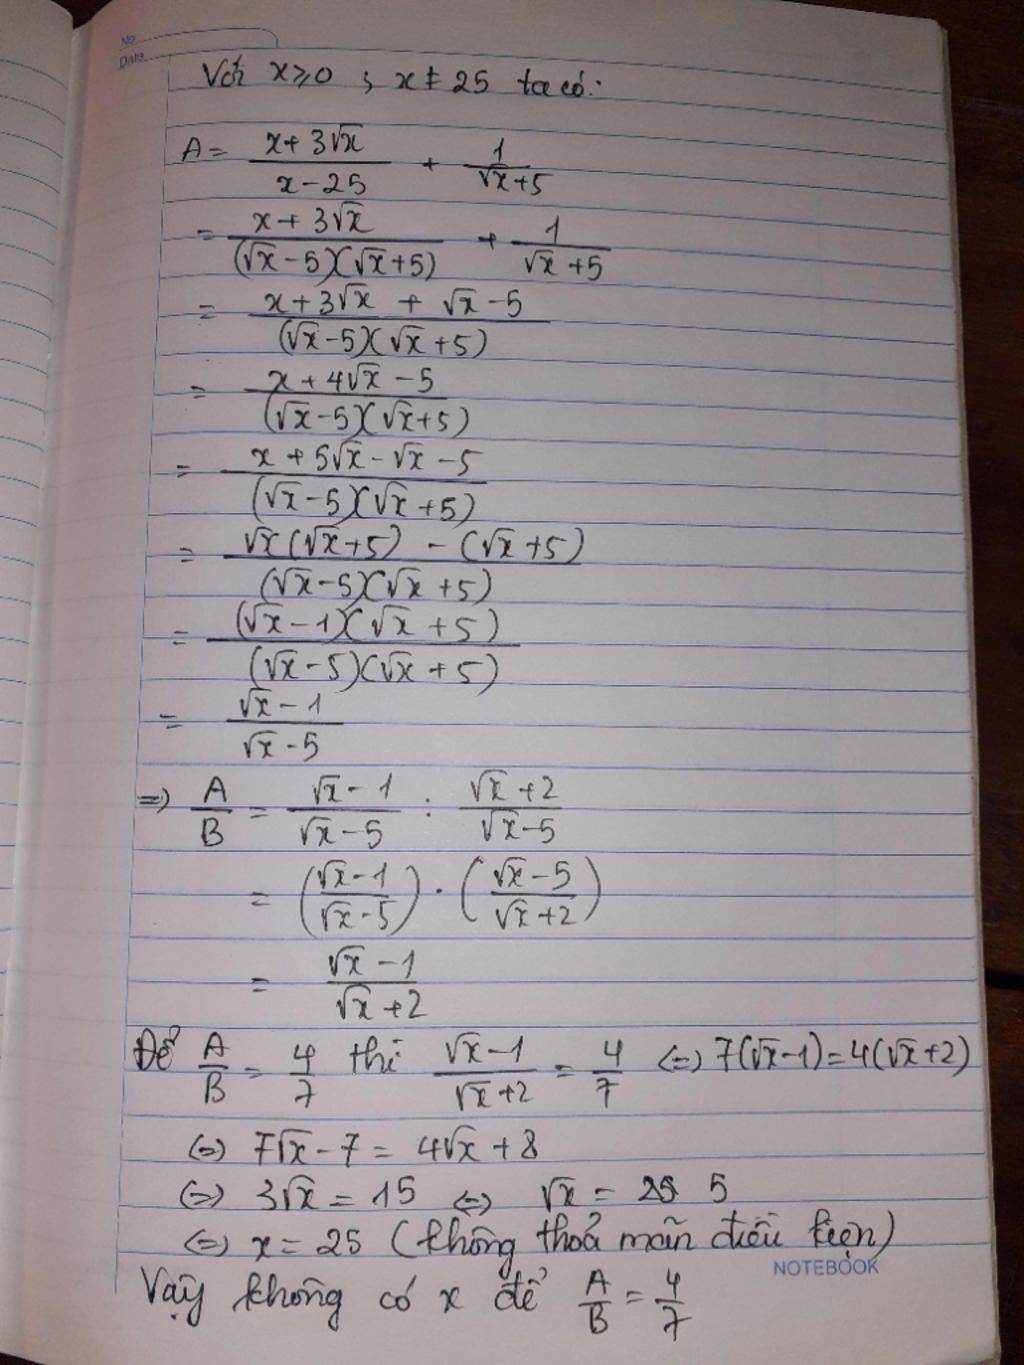 No.
Date
Với x ≥ 0 ; x ≠ 25 ta có:
A = (x + 3√x)/(x - 25) + 1/(√x + 5)
= (x + 3√x)/((√x - 5)(√x + 5)) + 1/(√x + 5)
= (x + 3√x + √x - 5)/((√x - 5)(√x + 5))
= (x + 4√x - 5)/((√x - 5)(√x + 5))
= (x + 5√x - √x - 5)/((√x - 5)(√x + 5))
= (√x(√x + 5) - (√x + 5))/((√x - 5)(√x + 5))
= ((√x - 1)(√x + 5))/((√x - 5)(√x + 5))
= (√x - 1)/(√x - 5)
=> A/B = (√x - 1)/(√x - 5) : (√x + 2)/(√x - 5)
= ((√x - 1)/(√x - 5)) . ((√x - 5)/(√x + 2))
= (√x - 1)/(√x + 2)
Để A/B = 4/7 thì (√x - 1)/(√x + 2) = 4/7 <=> 7(√x - 1) = 4(√x + 2)
<=> 7√x - 7 = 4√x + 8
<=> 3√x = 15 <=> √x = 5
<=> x = 25 (không thoả mãn điều kiện)
NOTEBOOK
Vậy không có x để A/B = 4/7